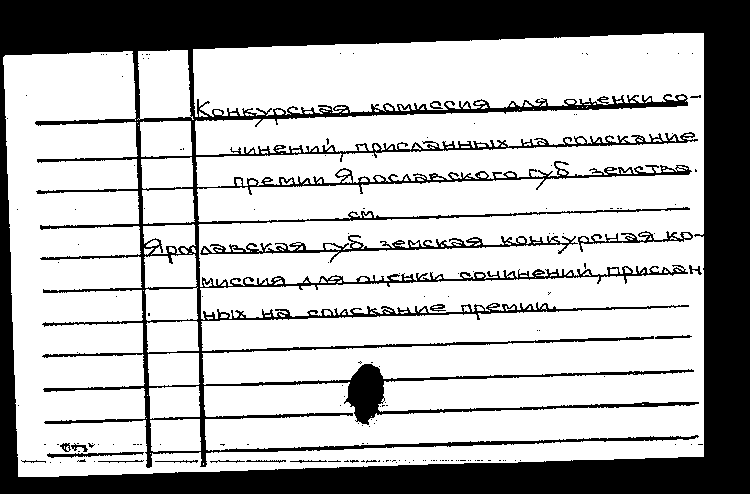 Конкурсная комиссия для оценки со-
чинений, присланных на соискание
премии Ярославского губ. земства.
см.
Ярославская губ. земская конкурсная ко-
миссия для оценки сочинений, прислан-
ных на соискание премии.